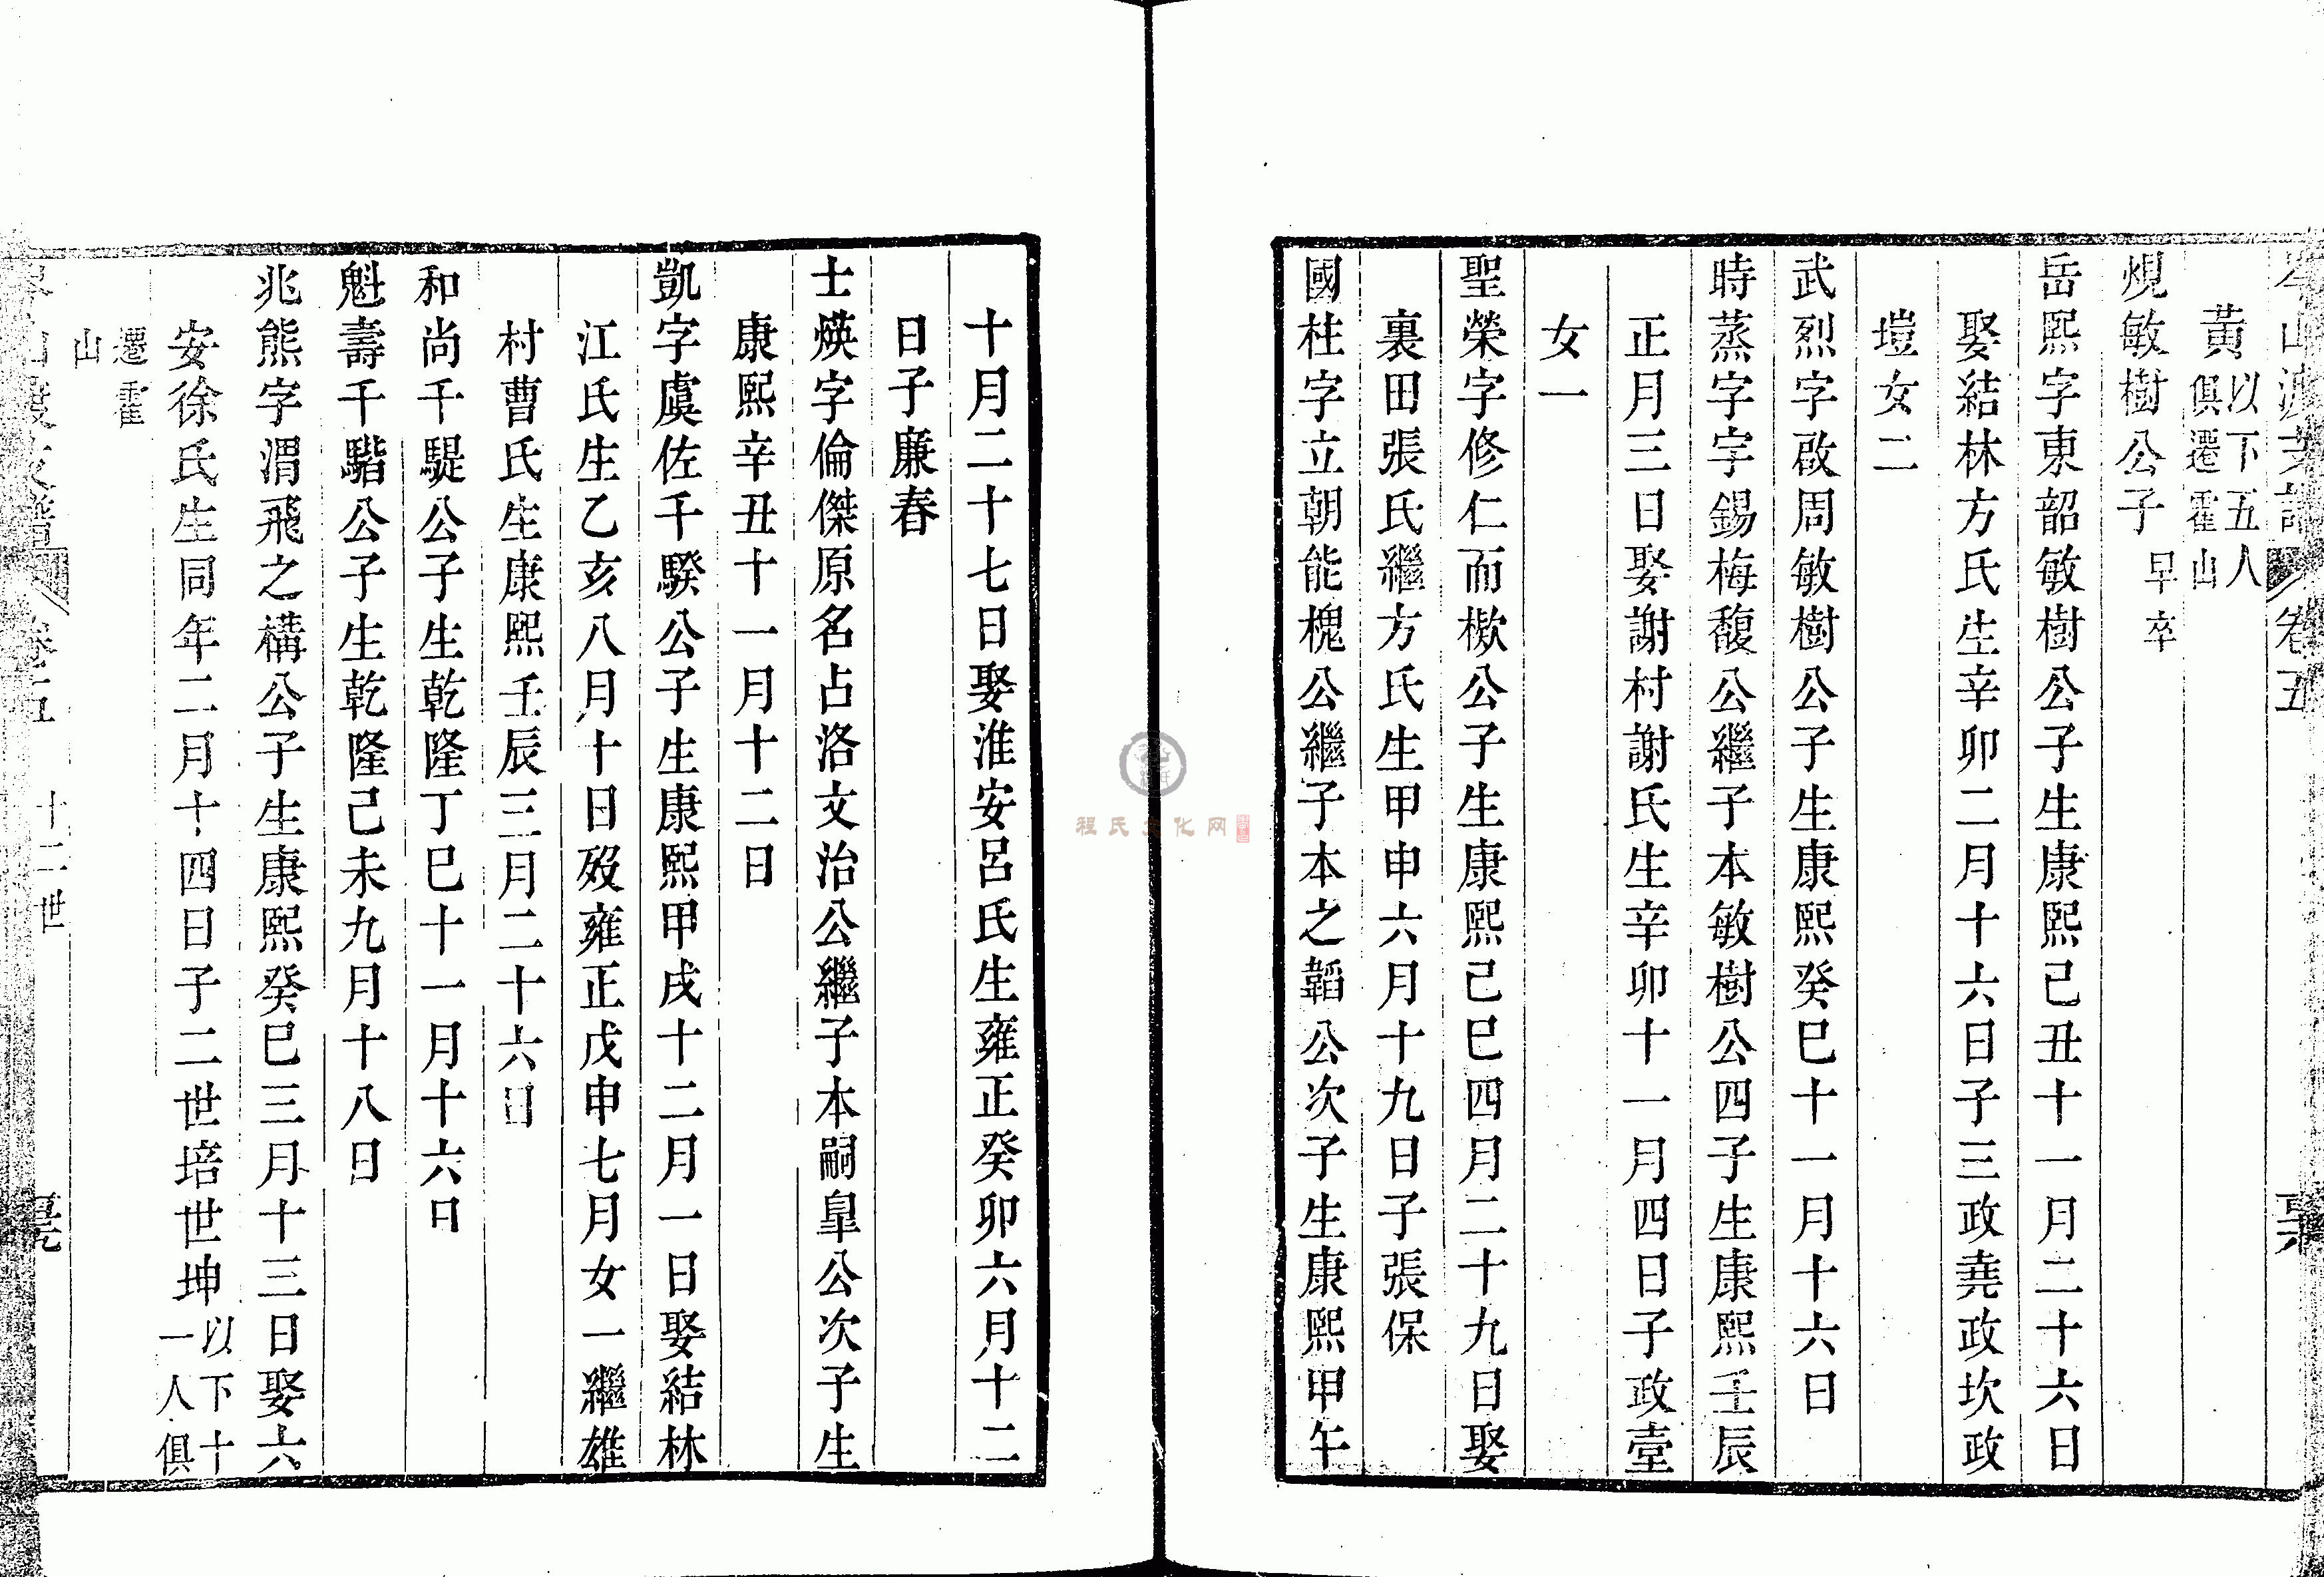 山渡支譜 卷五
黃以下五人俱遷霍山
焜敏樹公子早卒
岳熙字東韶敏樹公子生康熙己丑十一月二十六日
娶結林方氏生辛卯二月十六日子三政堯政坎政
塏女二
武烈字啟周敏樹公子生康熙癸巳十一月十六日
時蒸字宇錫梅馥公繼子本敏樹公四子生康熙壬辰
正月三日娶謝村謝氏生辛卯十一月四日子政壹
女一
聖榮字修仁而樕公子生康熙己巳四月二十九日娶
裏田張氏繼方氏生甲申六月十九日子張保
國柱字立朝能槐公繼子本之韜公次子生康熙甲午
十月二十七日娶淮安呂氏生雍正癸卯六月十二
日子廉春
士煐字倫傑原名占洛文治公繼子本嗣皐公次子生
康熙辛丑十一月十二日
凱字虞佐千騤公子生康熙甲戌十二月一日娶結林
江氏生乙亥八月十日歿雍正戊申七月女一繼雄
村曹氏生康熙壬辰三月二十六日
和尚千騠公子生乾隆丁巳十一月十六日
魁壽千騮公子生乾隆己未九月十八日
兆熊字渭飛之構公子生康熙癸巳三月十三日娶六
安徐氏生同年二月十四日子二世培世坤以下十一人俱
遷霍山
山渡支譜 卷五 十二世
程氏文化网